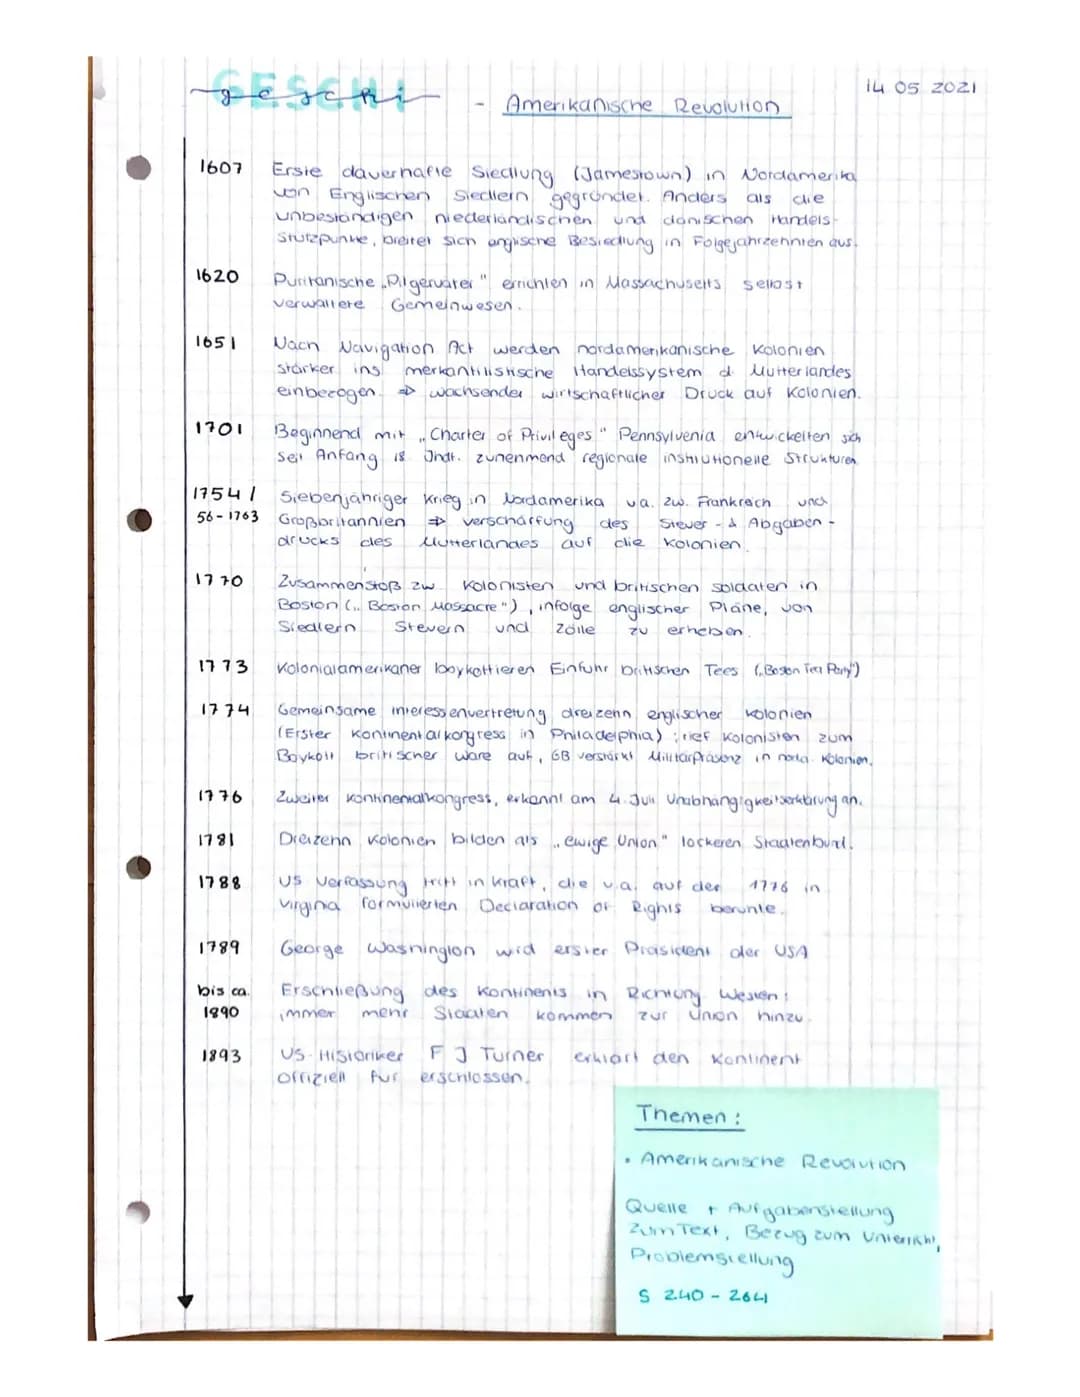 GESCHI
geschi
- Amerikanische Revolution
14 05 2021
1607 Erste dauerhafte Siedlung (Jamestown) in Nordamerika
von Englischen Siedlern gegründet. Anders als die
unbeständigen niederländischen und dänischen Handels-
Stützpunkte, breitet sich englische Besiedlung in Folgejahrzehnten aus.
1620 Puritanische „Pilgerväter" errichten in Massachusetts selbst
verwaltete Gemeinwesen.
1651 Nach Navigation Act werden nordamerikanische Kolonien
stärker ins merkantilistische Handelssystem d. Mutterlandes
einbezogen. => wachsender wirtschaftlicher Druck auf Kolonien.
1701 Beginnend mit „Charter of Privileges" Pennsylvenia entwickelten sich
seit Anfang 18 Jhdt. zunehmend regionale institutionelle Strukturen
1754 / Siebenjähriger Krieg in Nordamerika v.a. zw. Frankreich und
56-1763 Großbritannien => verschärfung des Steuer- & Abgaben-
drucks des Mutterlandes auf die Kolonien.
1770 Zusammenstoß zw. Kolonisten und britischen soldaten in
Boston („Boston Massacre"), infolge englischer Pläne, von
Siedlern Steuern und Zölle zu erheben.
1773 Kolonialamerikaner boykottieren Einfuhr britischen Tees („Boston Tea Party")
1774 Gemeinsame interessenvertretung dreizehn englischer Kolonien
(Erster Kontinentalkongress in Philadelphia); rief Kolonisten zum
Boykott britischer ware auf, GB verstärkt Militärpräsenz in norda. Kolonien.
1776 Zweiter Kontinentalkongress, erkannt am 4. Juli Unabhängigkeitserklärung an.
1781 Dreizehn Kolonien bilden als „ewige Union" lockeren Staatenbund.
1788 US Verfassung tritt in Kraft, die v.a. auf der 1776 in
Virginia formulierten Declaration of Rights beruhte.
1789 George Washington wird erster Präsident der USA
bis ca. Erschließung des Kontinents in Richtung Westen;
1890 immer mehr Staaten kommen zur Union hinzu.
1893 US-Historiker F J Turner erklärt den Kontinent
offiziell für erschlossen.
Themen:
• Amerikanische Revolution
Quelle + Aufgabenstellung
zum Text, Bezug zum Unterricht,
Problemstellung
S 240-264